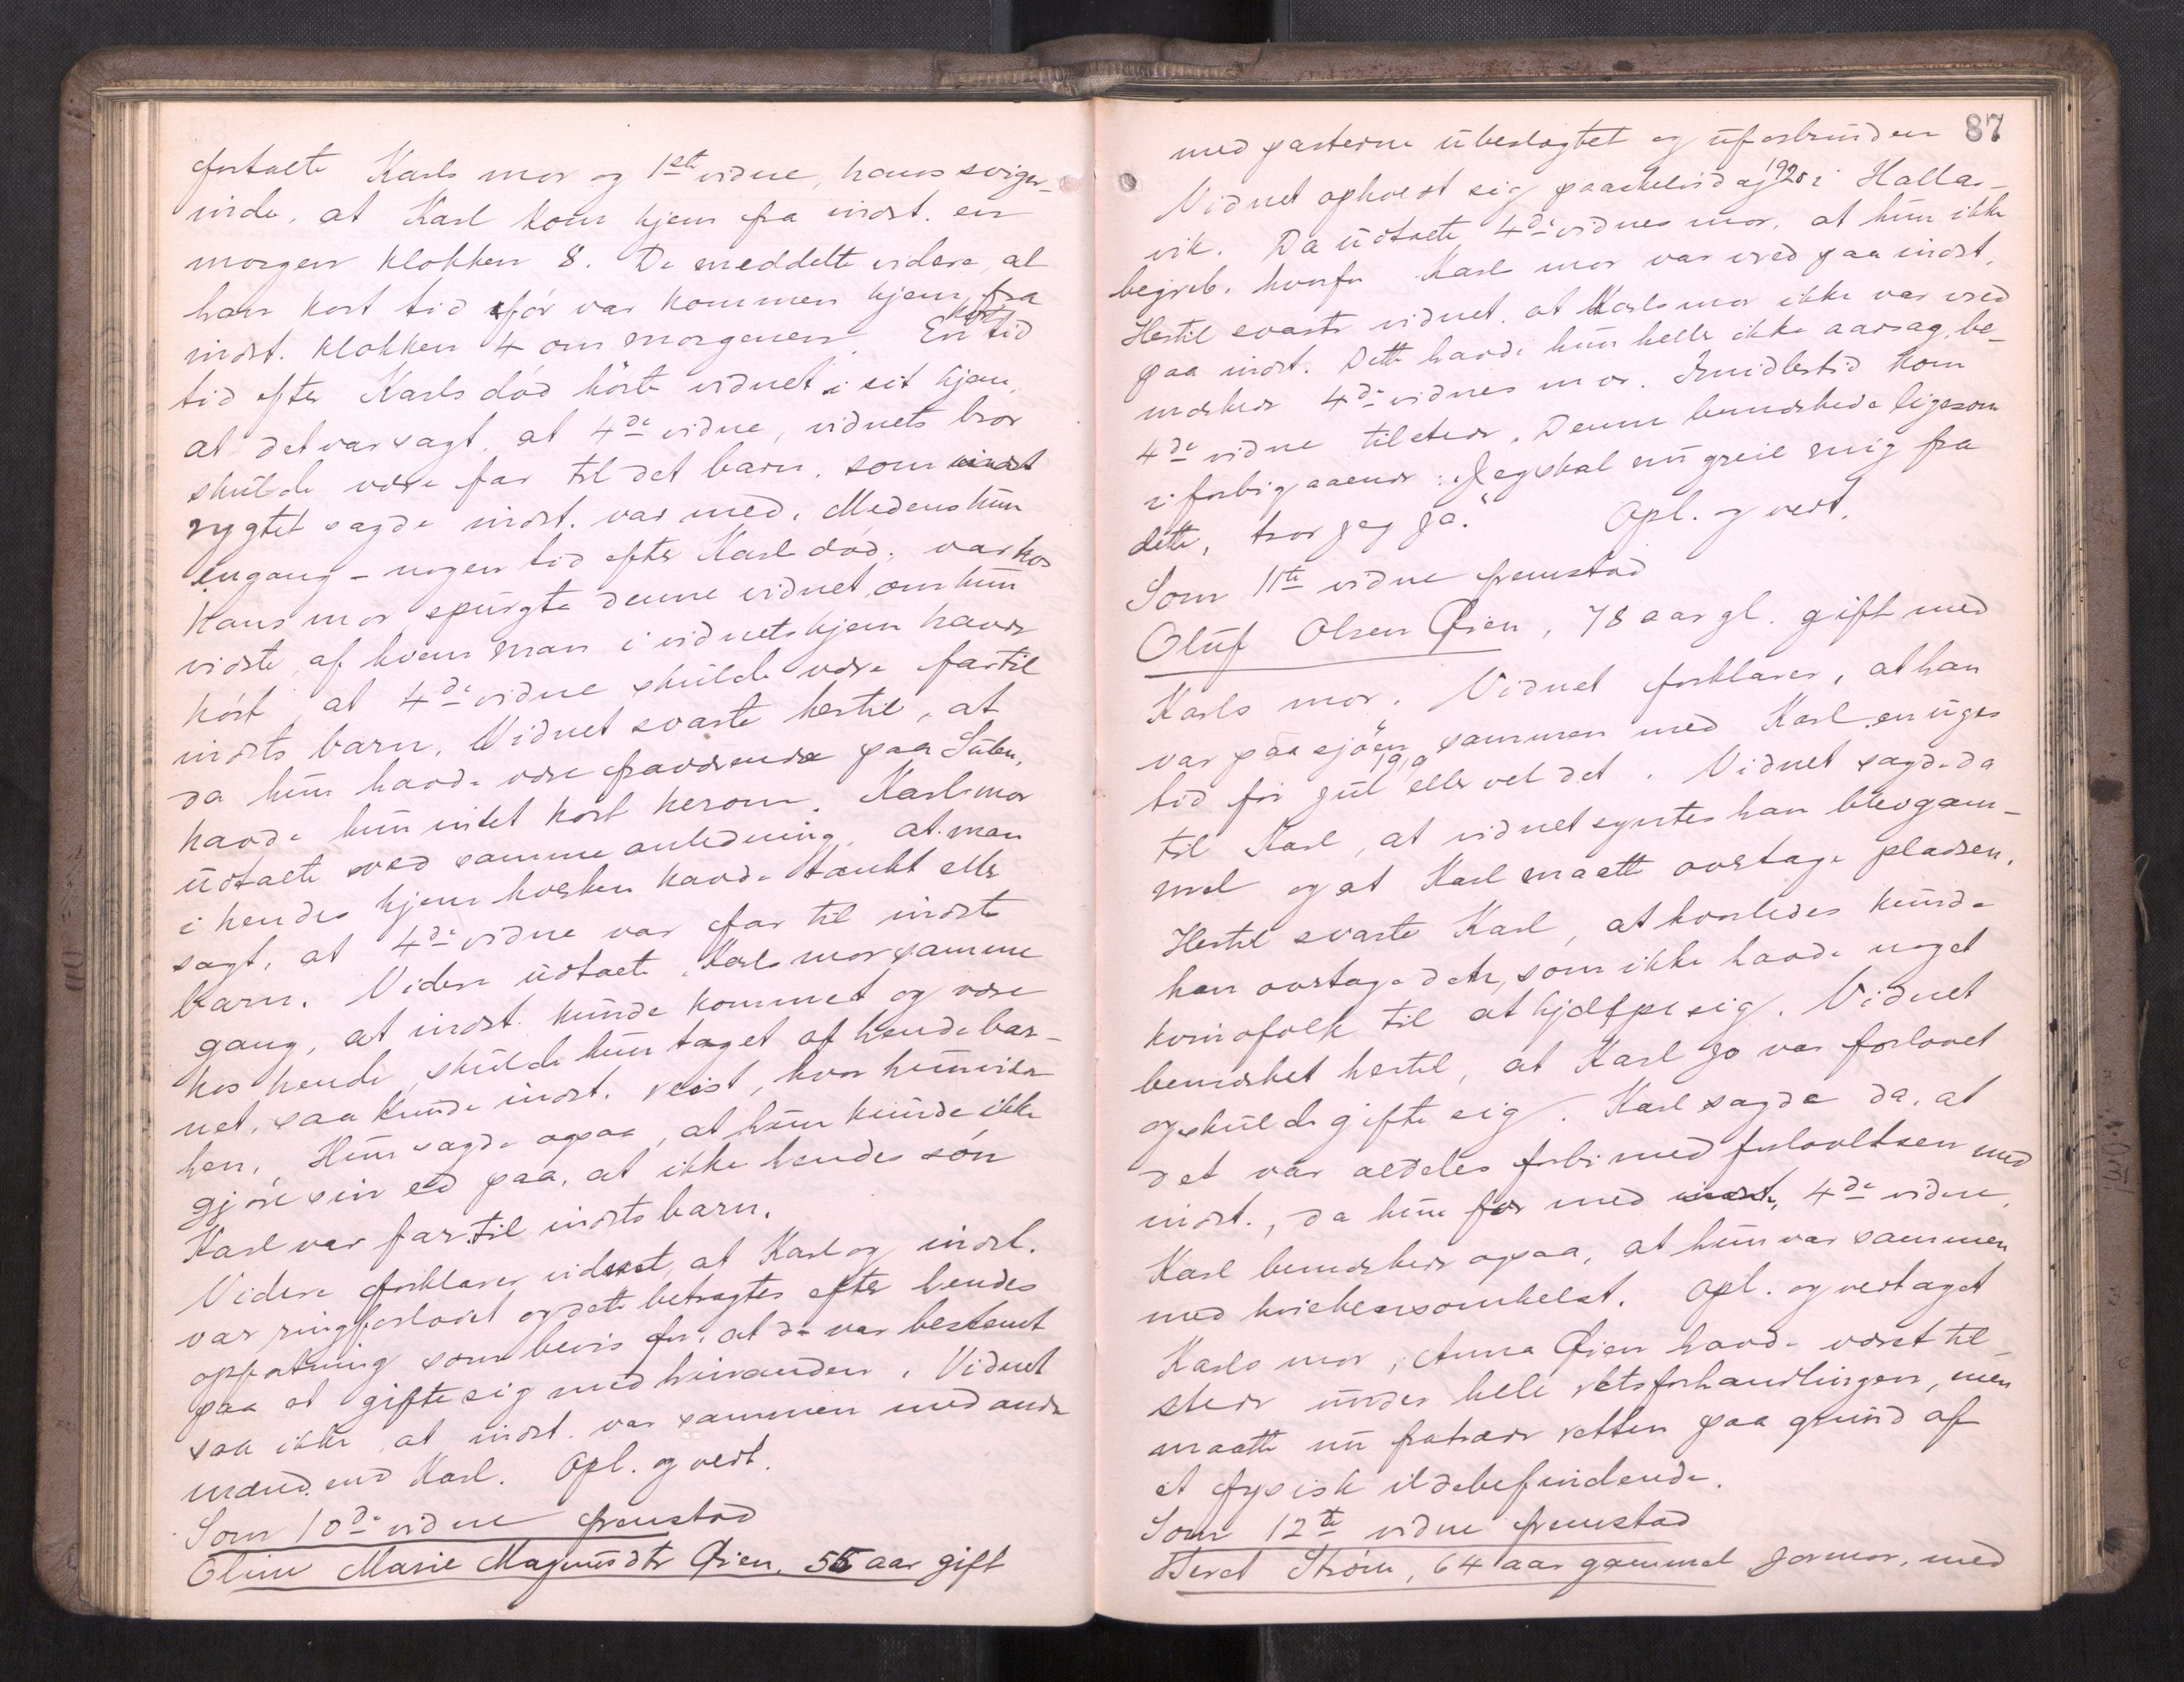 fortalte Karls mor og 1ste vidne, hans sviger-
inde, at Karl kom hjem fra indst. en
morgen klokken 8. De meddelte videre, at
han kort tid før var kommen hjem fra
indst. klokken 4 om morgenen. En kort tid
tid efter Karls død hørte vidnet i sit hjem,
at det var sagt, at 4de vidne, vidnets bror
skulde være far til det barn, som indst
rygtet sagde indst. var med. Medens hun
engang - nogen tid efter Karl død, var hos
hans mor spurgte denne vidnet, om hun
vidste, af hvem man i vidnets hjem havde
hørt, at 4de vidne skulde være far til
indsts barn. Vidnet svarte hertil, at
da hun havde være fraværende paa
havde hun intet hørt herom. Karls mor
udtalte ved samme anledning, at man
i hendes hjem hverken havde tænkt eller
sagt, at 4de vidne var far til indsts
barn. Videre udtalte Karls mor samme
gang, at indst. kunde kommet og være
hos hende, skulde hun taget af hende bar-
net, saa kunde indst. reist, hvor hun vilde
hen. Hun sagde ogsaa, at hun kunde ikke
gjøre sin ed paa, at ikke hendes søn
Karl var far til indsts barn.
Videre forklarer vidnet, at Karl og indst.
var ringforlovet og dette betragtes efter hendes
opfatning som bevis for, at de var bestemt
paa at gifte sig med hinanden. Vidnet
saa ikke, at indst. var sammen med andre
mænd end Karl. Opl. og vedt.
Som 10de vidne fremstod
Oline Marie Magnusdtr Øien, 55 aar gift
87
med parterne ubeslægtet og uforbunden
Vidnet opholdt sig paaskelid aj 1920 i Halla-
vik. Da udtalte 4de vidnes mor, at hun ikke
begreb, hvorfor Karl mor var vred paa indst.
Hertil svarte vidnet, at Karls mor ikke var vred
paa indst. Dette havde hun heller ikke aarsag, be-
mærker 4de vidnes mor. Imidlertid kom
4de vidne tilstede. Denne bemærkede ligesom
i forbigaaende: "Jeg skal nu greie mig fra
dette, tror jeg ja." Opl. og vedt.
Som 11te vidne fremstod
Oluf Olsen Øien, 78 aar gl. gift med
Karls mor. Vidnet forklarer, at han
var paa sjøen sammen med Karl en uges
tid før jul 1919 eller vel det. Vidnet sagde da
til Karl, at vidnet syntes han blev gam-
mel og at Karl maatte overtage pladsen.
Hertil svarte Karl, at hvorledes kunde
han overtage dette, som ikke havde noget
kvindfolk til at hjælpe sig. Vidnet
bemærket hertil, at Karl jo var forlovet
og skulde gifte sig. Karl sagde da, at
det var aldeles forbi med forlovelsen med
indst., da hun for med indst, 4de vidne.
Karl bemærker ogsaa, at hun var sammen
med hvicken somhelst. Opl. og vedtaget
Karls mor, Anna Øien havde været til-
stede under hele retsforhandlingen, men
maatte nu fratræde retten paa grund af
et fysisk ildebefindende.
Som 12te vidne fremstod
Beret Strøm, 64 aar gammel jormor, med